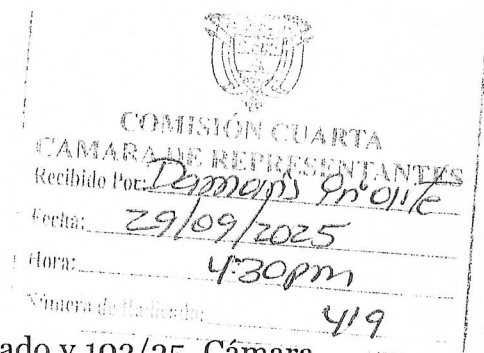 COMISIÓN CUARTA
CAMARA DE REPRESENTANTES
Recibido Por: Damaris
Fecha: 29/09/2025
Hora: 4:30pm
Número de Radicado: 419
ado y 102/25 Cámara